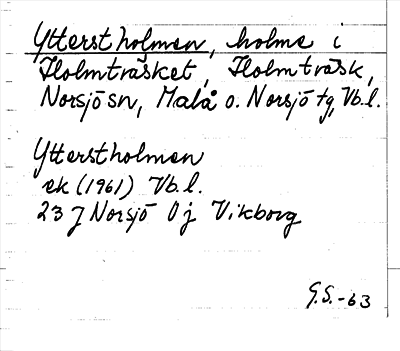 Ytterstholmen, holme i
Holmträsket, Holmträsk,
Norsjö sn, Malå o. Norsjö tg, Vb.l.
Ytterstholmen
ek (1961) Vb.l.
23 J Norsjö 0j Vikborg
G.S.-63